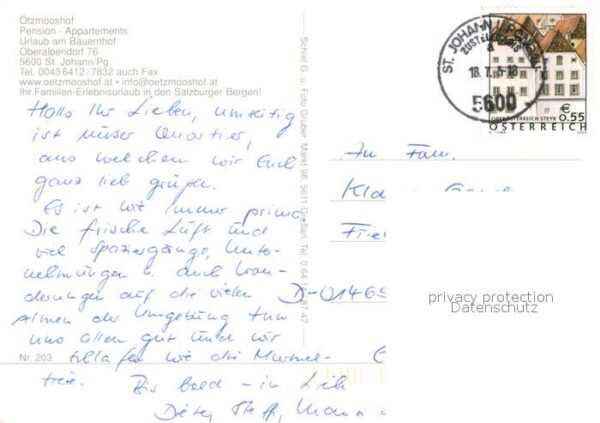 Ötzmooshof
Pension - Appartements
Urlaub am Bauernhof
Oberalpendorf 76
5600 St. Johann/Pg.
Tel. 0043 6412 / 7832 auch Fax
www.oetzmooshof.at • info@oetzmooshof.at
Ihr Familien-Erlebnisurlaub in den Salzburger Bergen!
Hallo Ihr Lieben, umseitig
ist unser Quartier,
aus welchem wir Euch
ganz lieb grüßen.
Es ist wie immer prima
Die frische Luft und
viel Spaziergänge, Unter-
nehmungen u. auch Wan-
derungen auf die vielen
Almen der Umgebung tun
uns allen gut und wir
schlafen wie die Murmel-
tiere. Bis bald - in Liebe
Dieter, Steff,
Nr. 203
Schiel G. u. Foto Gruber, Markt 98, 5611 Großarl, Tel. 0 64 1 87 47
ST. JOHANN I. PONGAU
18.7.
5600
€ 0,55
OBERÖSTERREICH STEYR
ÖSTERREICH
An Fam.
Kla
Frie
D-0146
privacy protection
Datenschutz